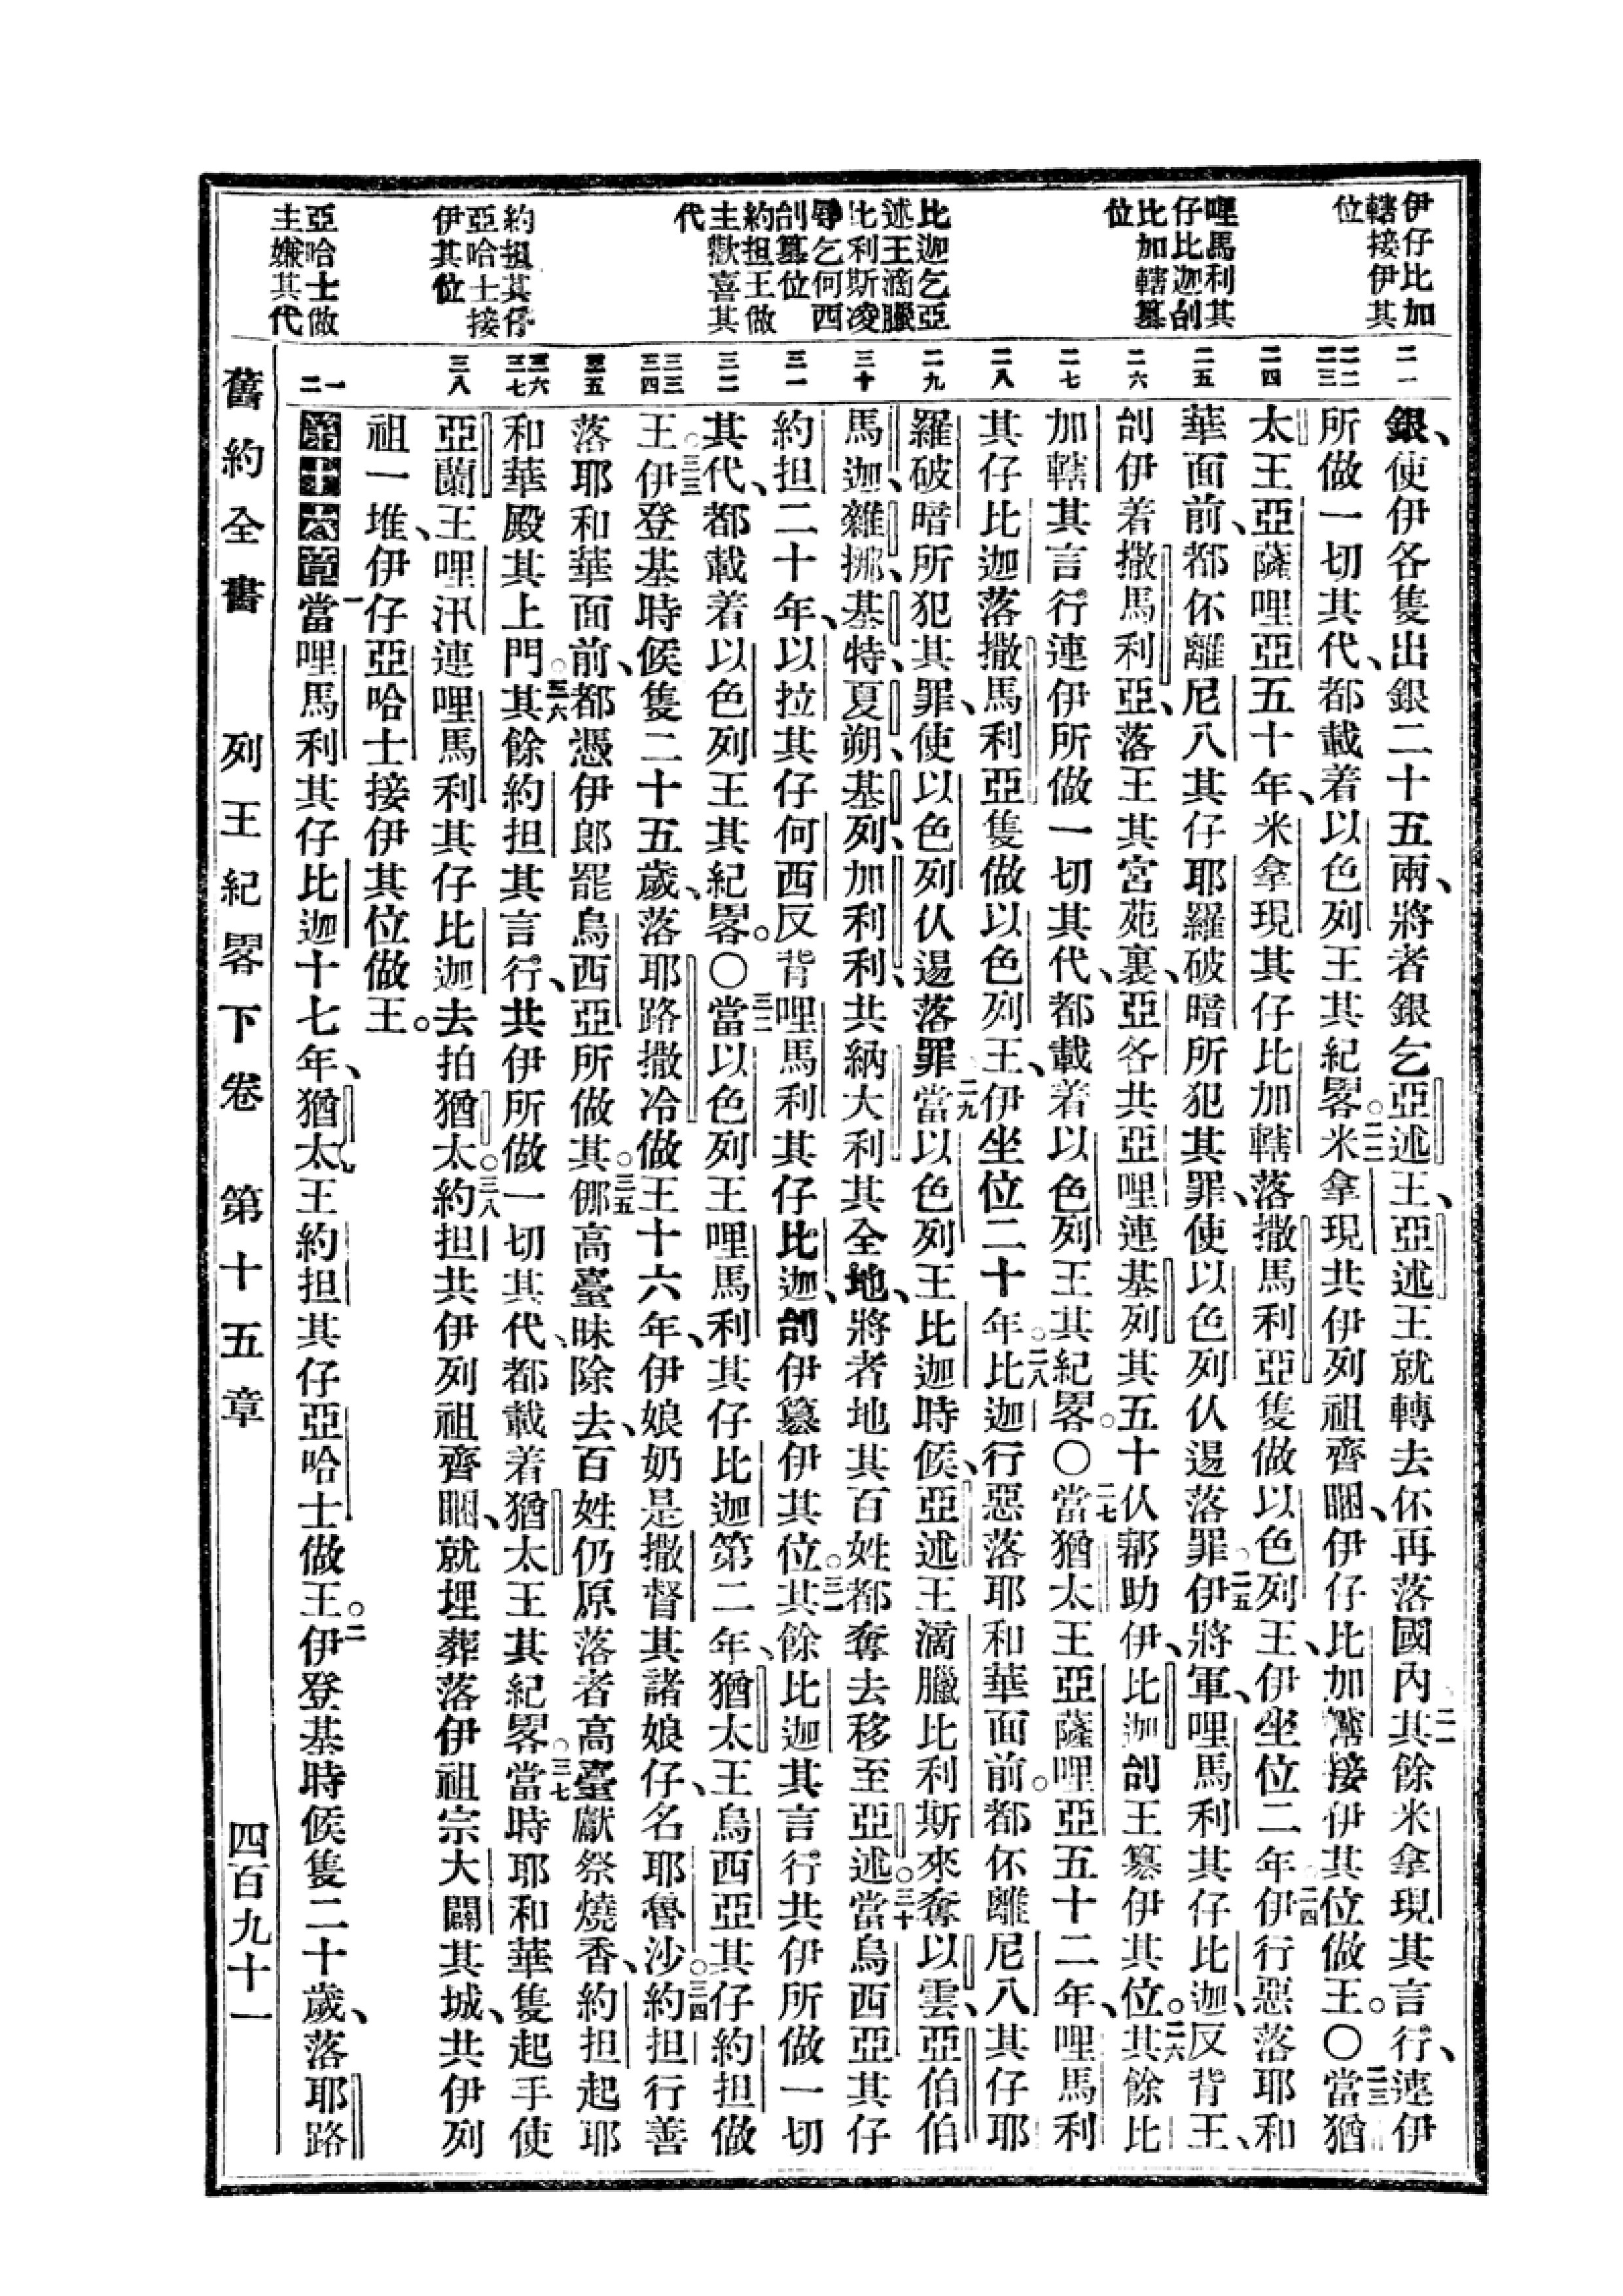 伊仔比加
轄接伊其
位
哩馬利其
仔比迦刣
比加轄篡
位
比迦乞亞
述王滴臘
比利斯凌
辱乞何西
刣篡位
約担王做
主歡喜其
代
約担其仔
亞哈士接
伊其位
亞哈士做
主嫌其代
二一
二二
二三
二四
二五
二六
二七
二八
二九
三十
三一
三二
三三
三四
三五
三六
三七
三八
一
二
銀、使伊各隻出銀二十五兩、將者銀乞亞述王、亞述王就轉去伓再落國內其二一餘米拿現其言行、連伊
所做一切其代、都載着以色列王其紀畧。二二米拿現共伊列祖齊睏、伊仔比加轄接伊其位做王。〇二三當猶
太王亞薩哩亞五十年、米拿現其仔比加轄落撒馬利亞隻做以色列王、伊坐位二年二四伊行惡落耶和
華面前、都伓離尼八其仔耶羅破暗所犯其罪、使以色列仈逿落罪。二五伊將軍、哩馬利其仔比迦、反背王、
刣伊着撒馬利亞、落王其宮苑裏、亞各共亞哩連基列其五十仈幫助伊、比迦刣王篡伊其位。二六其餘比
加轄其言行連伊所做一切其代、都載着以色列王其紀畧。〇二七當猶太王亞薩哩亞五十二年、哩馬利
其仔比迦落撒馬利亞隻做以色列王、伊坐位二十年。二八比迦行惡落耶和華面前。都伓離尼八其仔耶
羅破暗所犯其罪、使以色列仈逿落罪二九當以色列王比迦時候、亞述王滴臘比利斯來奪以雲、亞伯伯
馬迦、雜挪、基特、夏朔、基列、加利利、共納大利其全地、將者地其百姓都奪去移至亞述。三十當烏西亞其仔
約担二十年、以拉其仔何西反背哩馬利其仔比迦、刣伊篡伊其位。三一其餘比迦其言行共伊所做一切
其代、都載着以色列王其紀畧。〇三二當以色列王哩馬利其仔比迦第二年、猶太王烏西亞其仔約担做
王。三三伊登基時候隻二十五歲、落耶路撒冷做王十六年、伊娘奶是撒督其諸娘仔、名耶魯沙。三四約担行善
落耶和華面前、都憑伊郎罷烏西亞所做其。三五㑚高臺昧除去、百姓仍原落者高臺獻祭燒香、約担起耶
和華殿其上門。三六其餘約担其言行、共伊所做一切其代、都載着猶太王其紀畧。三七當時耶和華隻起手使
亞蘭王哩汛連哩馬利其仔比迦去拍猶太。三八約担共伊列祖齊睏、就埋葬落伊祖宗大闢其城、共伊列
祖一堆、伊仔亞哈士接伊其位做王。
第十六章一當哩馬利其仔比迦十七年、猶太王約担其仔亞哈士做王。二伊登基時候隻二十歲、落耶路
舊約全書 列王紀畧下卷 第十五章 四百九十一